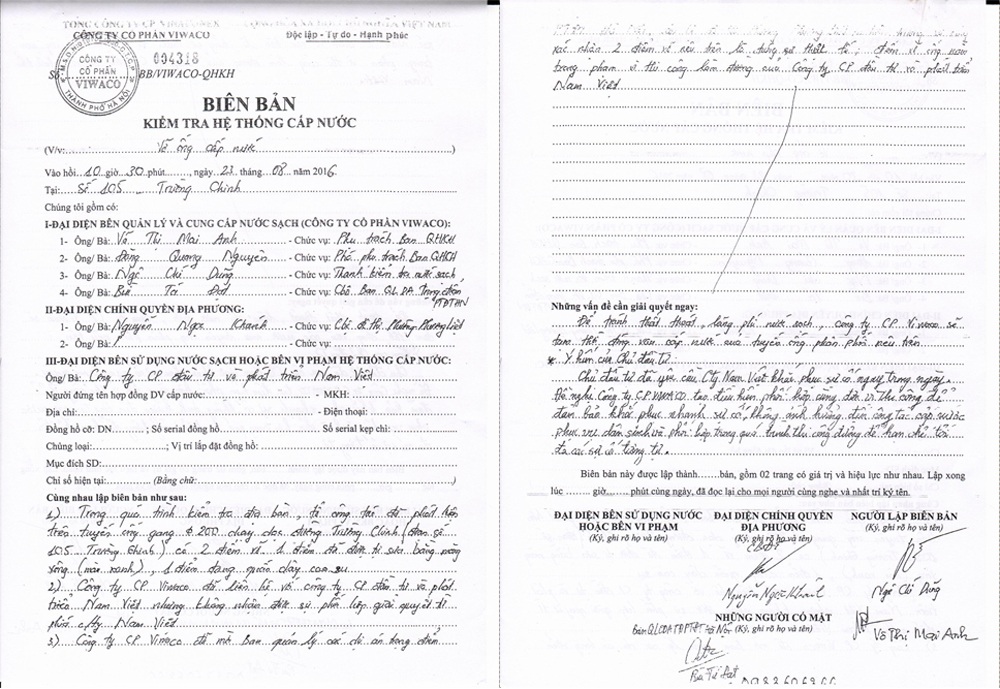 TỔNG CÔNG TY CP VINACONEX
CÔNG TY CỔ PHẦN VIWACO
CỘNG HÒA XÃ HỘI CHỦ NGHĨA VIỆT NAM
Độc lập - Tự do - Hạnh phúc
CÔNG TY
CỔ PHẦN
VIWACO
THÀNH PHỐ HÀ NỘI
Số 004318
BB/VIWACO-QHKH
BIÊN BẢN
KIỂM TRA HỆ THỐNG CẤP NƯỚC
(V/v: Vỡ ống cấp nước)
Vào hồi 10 giờ 30 phút, ngày 23 tháng 08 năm 2016
Tại: Số 105 Trường Chinh
Chúng tôi gồm có:
I-ĐẠI DIỆN BÊN QUẢN LÝ VÀ CUNG CẤP NƯỚC SẠCH (CÔNG TY CỔ PHẦN VIWACO):
1- Ông/ Bà: Võ Thị Mai Anh - Chức vụ: Phụ trách Ban QHKH
2- Ông/ Bà: Đặng Quang Nguyên - Chức vụ: Phó phụ trách Ban QHKH
3- Ông/ Bà: Ngô Chí Dũng - Chức vụ: Thanh kiểm tra nước sạch
4- Ông/ Bà: Bùi Tá Đạt - Chức vụ: CBộ Ban QLDA Trọng điểm
PTĐTHN
II-ĐẠI DIỆN CHÍNH QUYỀN ĐỊA PHƯƠNG:
1- Ông/ Bà: Nguyễn Ngọc Khánh - Chức vụ: Cbị đô thị Phường Phương Liệt
2- Ông/ Bà: - Chức vụ:
III-ĐẠI DIỆN BÊN SỬ DỤNG NƯỚC SẠCH HOẶC BÊN VI PHẠM HỆ THỐNG CẤP NƯỚC:
Ông/ Bà: Công ty CP đầu tư và phát triển Nam Việt
Người đứng tên hợp đồng DV cấp nước: - MKH:
Địa chỉ: - Điện thoại:
Đồng hồ cỡ: DN ; Số serial đồng hồ Số serial kẹp chì:
Chủng loại: ; Vị trí lắp đặt đồng hồ:
Mục đích SD:
Chỉ số hiện tại: (Bằng chữ:
Cùng nhau lập biên bản như sau:
1) Trong quá trình kiểm tra địa bàn, tổ công tác đã phát hiện
trên tuyến ống gang ϕ 200 chạy dọc đường Trường Chinh (đoạn số
105 Trường Chinh) có 2 điểm vỡ. 1 điểm đã được sửa bằng măng
sông (màu xanh), 1 điểm đang quấn dây cao su
2) Công ty CP Viwaco đã liên hệ với công ty CP đầu tư và phát
triển Nam Việt nhưng không nhận được sự phối hợp giải quyết từ
phía cty Nam Việt
3) Công ty CP Viwaco đã mời Ban quản lý các dự án trọng điểm
xác nhận 2 điểm vỡ nêu trên là đúng sự thật tế; điểm vỡ cũng nằm
trong phạm vi thi công làm đường của Công ty CP đầu tư và phát triển
Nam Việt
Những vấn đề cần giải quyết ngay:
Để tránh thất thoát, lãng phí nước sạch, công ty CP Viwaco sẽ
tạm thời đóng van cấp nước của tuyến ống phân phối nêu trên
* Ý kiến của Chủ đầu tư:
Chủ đầu tư đã yêu cầu Cty Nam Việt khắc phục sự cố ngay trong ngày.
Đề nghị Công ty CP VIWACO tạo điều kiện phối hợp cùng đơn vị thi công để
đảm bảo khắc phục nhanh sự cố, không ảnh hưởng đến công tác cấp nước
phục vụ dân sinh và phối hợp trong quá trình thi công đường để hạn chế tối
đa các sự cố tương tự.
Biên bản này được lập thành......bản, gồm 02 trang có giá trị và hiệu lực như nhau. Lập xong
lúc ........ giờ........ phút cùng ngày, đã đọc lại cho mọi người cùng nghe và nhất trí ký tên.
ĐẠI DIỆN BÊN SỬ DỤNG NƯỚC
HOẶC BÊN VI PHẠM
(Ký, ghi rõ họ và tên)
ĐẠI DIỆN CHÍNH QUYỀN
ĐỊA PHƯƠNG
(Ký, ghi rõ họ và tên)
Nguyễn Ngọc Khánh
NGƯỜI LẬP BIÊN BẢN
(Ký, ghi rõ họ và tên)
Ngô Chí Dũng
NHỮNG NGƯỜI CÓ MẶT
(Ký, ghi rõ họ và tên)
Võ Thị Mai Anh
Bùi Tá Đạt